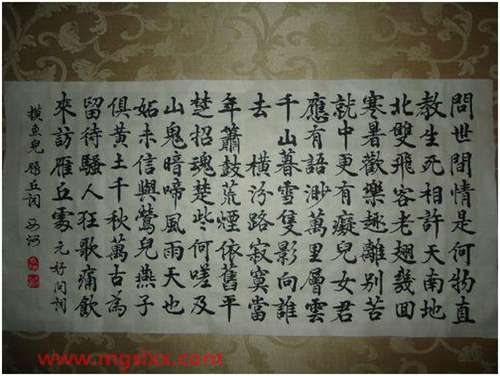 問世間情是何物直
教生死相許天南地
北雙飛客老翅幾回
寒暑歡樂趣離别苦
就中更有癡兒女君
應有語渺萬里層雲
千山暮雪隻影向誰
去 横汾路寂寞當
年簫鼓荒煙依舊平
楚招魂楚些何嗟及
山鬼暗啼風雨天也
妬未信與鶯兒燕子
俱黄土千秋萬古為
留待騷人狂歌痛飲
來訪雁丘處 元好問詞
摸魚兒 雁丘詞
www.mgslxx.com